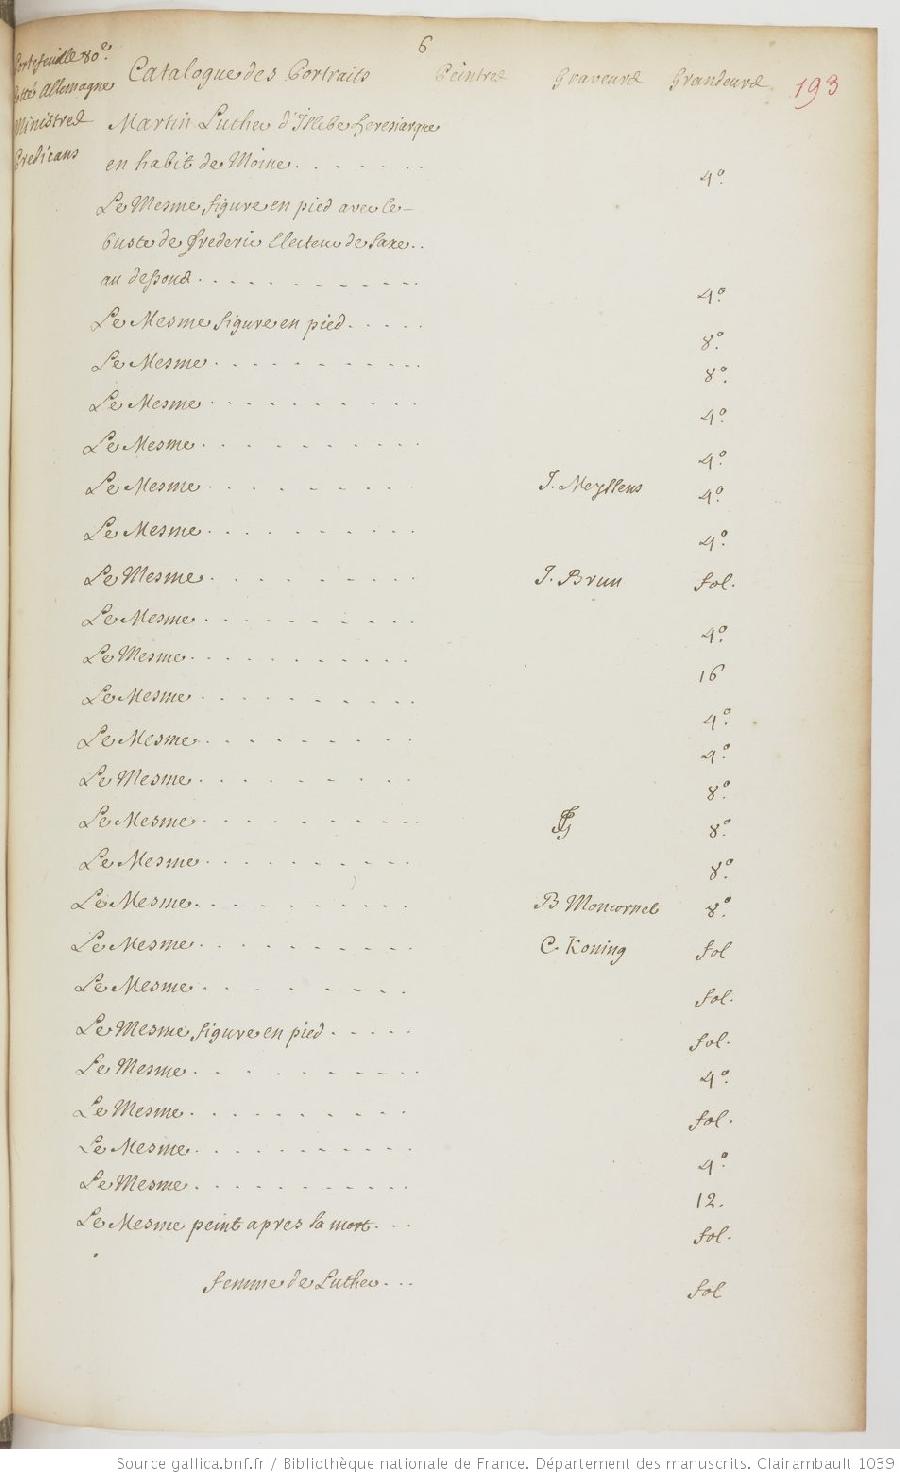 6
Portefeuille 80e.
Cotté Allemagne
Ministres
Predicans
Catalogue des Portraits Peintres Graveurs Grandeurs 193
Martin Luther d'Islebe heresiarque
en habit de Moine . . . . . . . 4o.
Le Mesme figure en pied avec le
buste de frederic Electeur de Saxe . .
au dessous . . . . . . . . . . . . 4o.
Le Mesme figure en pied . . . . . 8o.
Le Mesme . . . . . . . . . . . 8o.
Le Mesme . . . . . . . . . . 4o.
Le Mesme . . . . . . . . . . . 4o.
Le Mesme . . . . . . . . . J. Meyssens 4o.
Le Mesme . . . . . . . . . . . 4o.
Le Mesme . . . . . . . . . . J. Brun fol.
Le Mesme . . . . . . . . . . 4o.
Le Mesme . . . . . . . . . . . 16
Le Mesme . . . . . . . . . . 4o.
Le Mesme . . . . . . . . . . 4o.
Le Mesme . . . . . . . . . . 8o.
Le Mesme . . . . . . . . . . 8o.
Le Mesme . . . . . . . . . . 8o.
Le Mesme . . . . . . . . . . B Moncornet 8o.
Le Mesme . . . . . . . . . . C. Koning fol
Le Mesme . . . . . . . . . fol.
Le Mesme figure en pied . . . . . fol.
Le Mesme . . . . . . . . . . 4o.
Le Mesme . . . . . . . . . . fol.
Le Mesme . . . . . . . . . . . 4o.
Le Mesme . . . . . . . . . . . 12.
Le Mesme peint apres sa mort . . . fol.
femme de Luther . . . fol
Source gallica.bnf.fr / Bibliothèque nationale de France. Département des manuscrits. Clairambault 1039